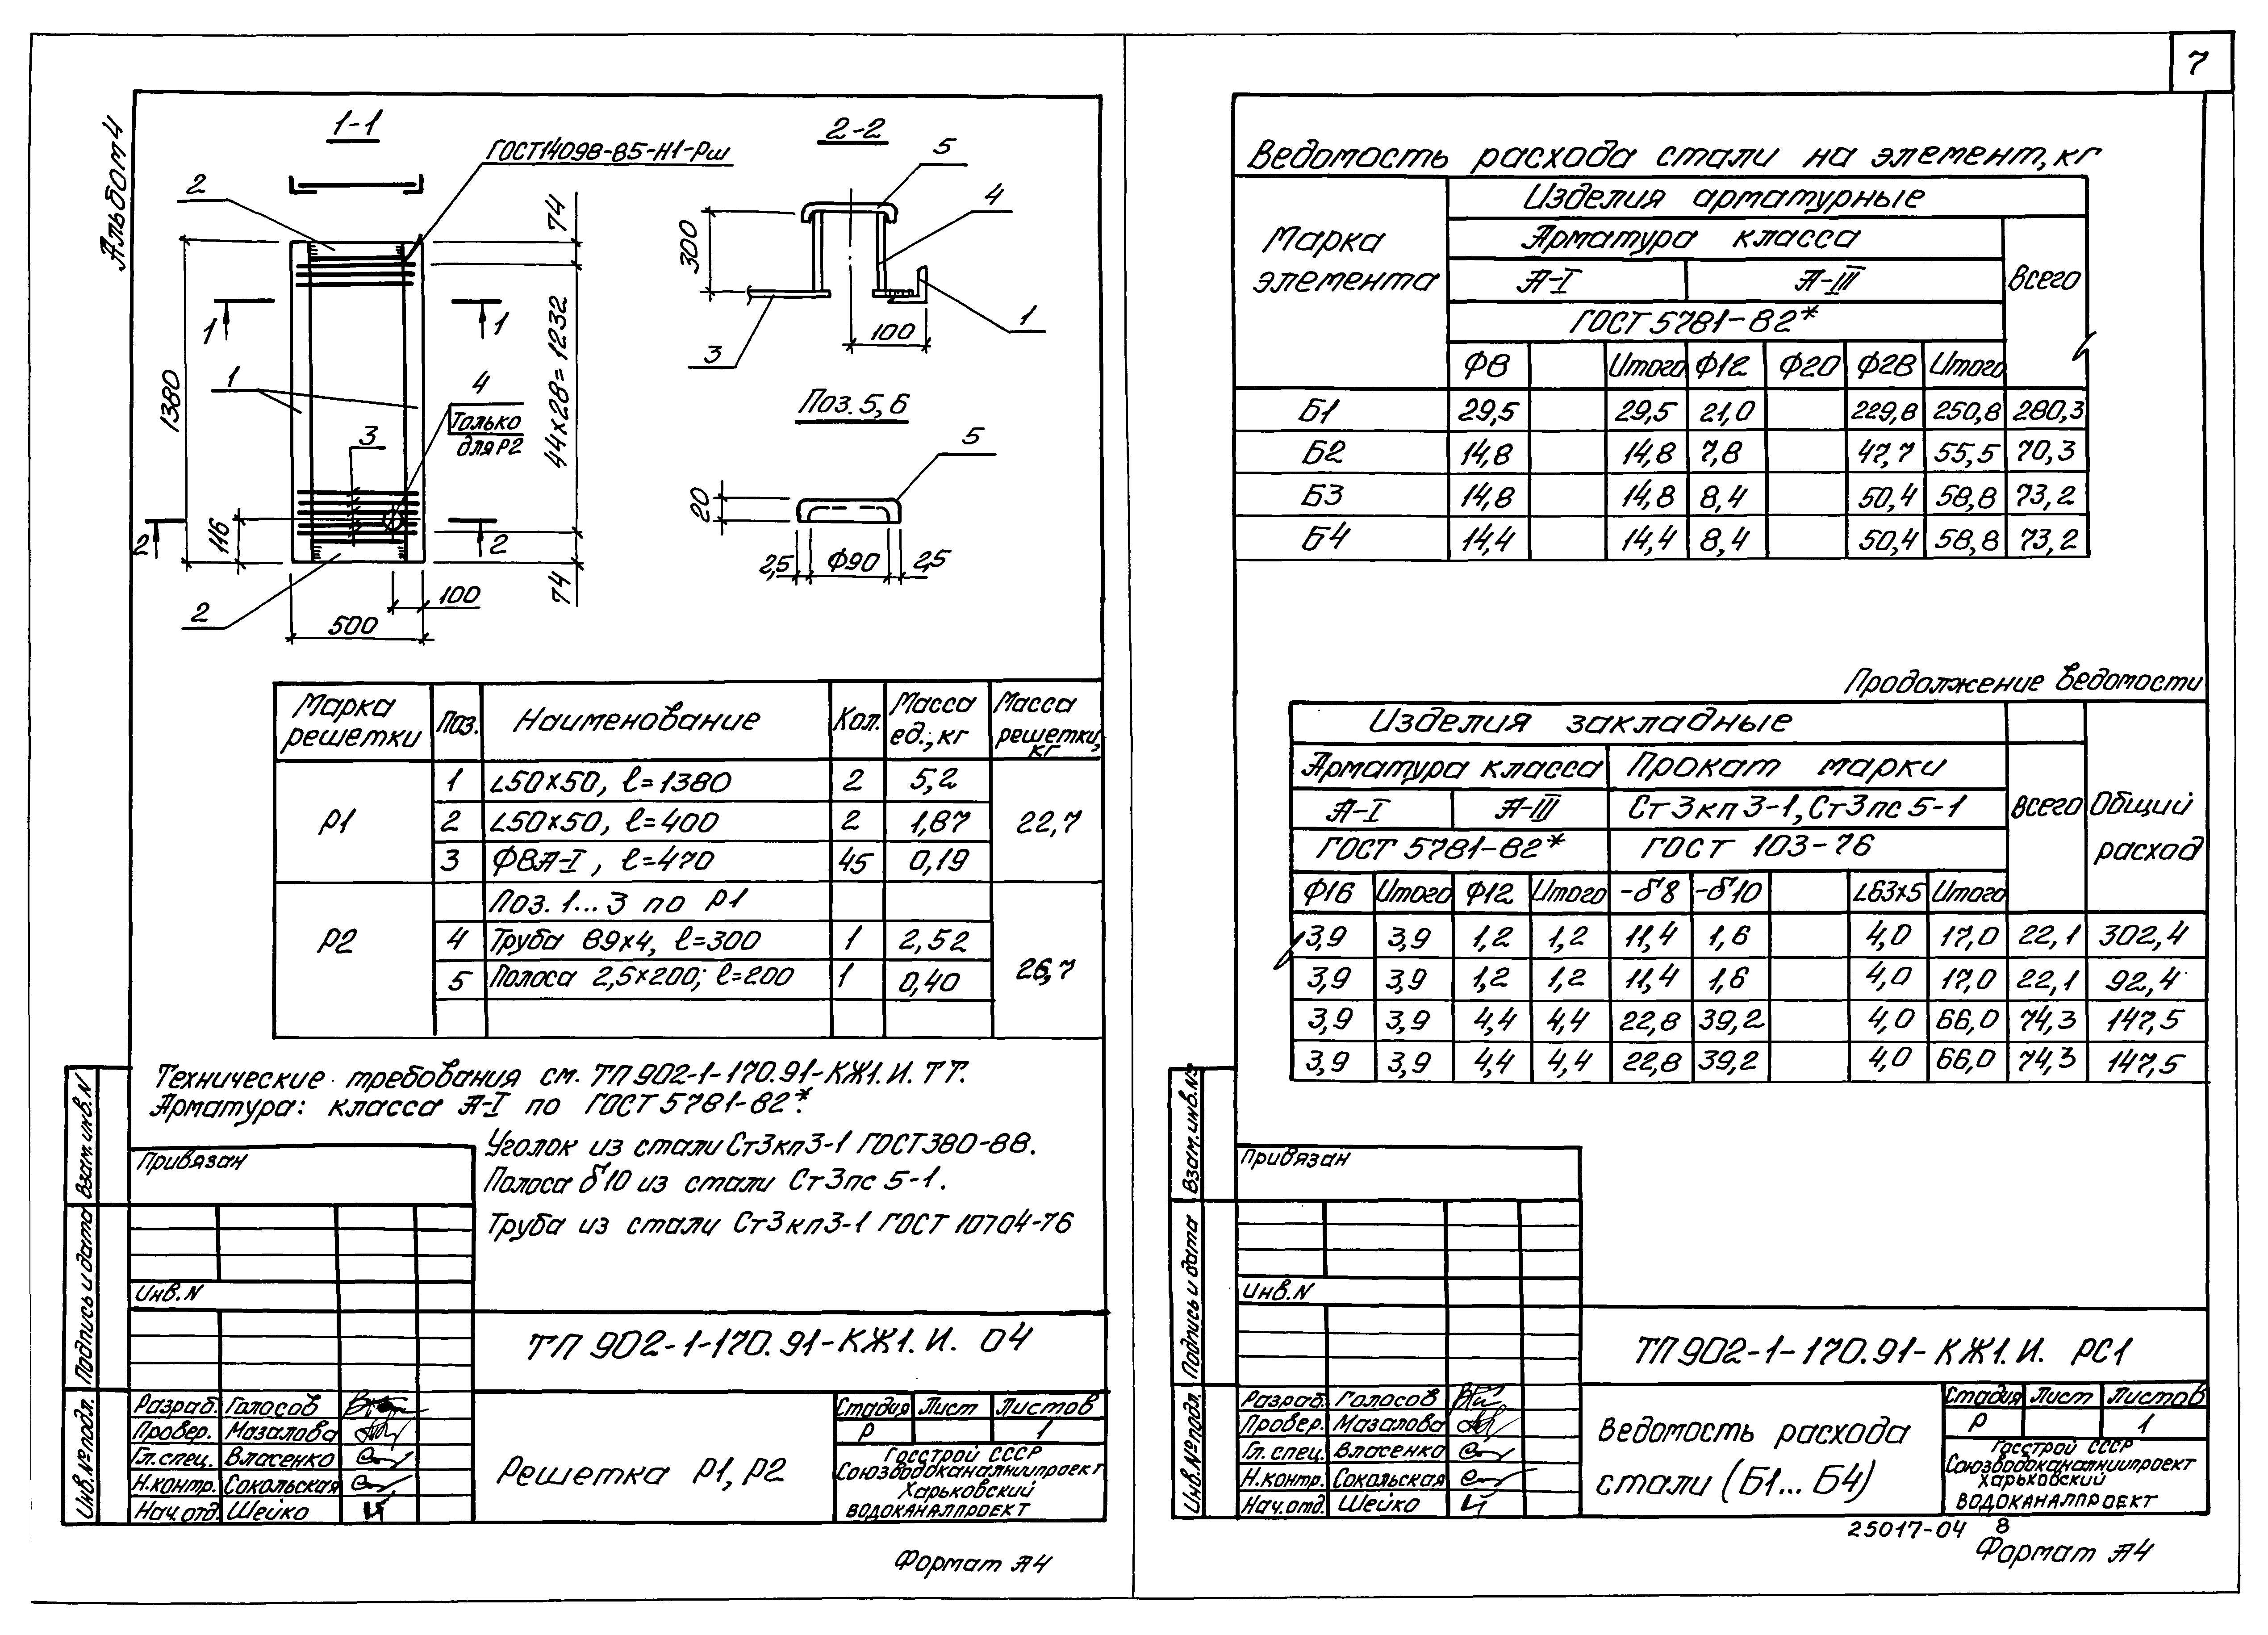 7
Альбом 4
1-1
ГОСТ14098-85-Н1-Рш
2
74
1380
1
1
1
4
Только
для Р2
44×28=1232
3
116
2
2
74
2
100
500
2-2
5
4
300
1
100
3
Поз. 5, 6
5
20
2,5 Ф90 2,5
Марка решетки Поз. Наименование Кол. Масса ед., кг Масса решетки, кг
Р1
1 L50×50, ℓ=1380 2 5,2
2 L50×50, ℓ=400 2 1,87 22,7
3 Ф8А-I, ℓ=470 45 0,19
Р2
Поз. 1...3 по Р1
4 Труба 89×4, ℓ=300 1 2,52
5 Полоса 2,5×200; ℓ=200 1 0,40 26,7
Технические требования см. ТП 902-1-170.91-КЖ1.И. ТТ.
Арматура: класса А-I по ГОСТ 5781-82*.
Уголок из стали Ст3кп3-1 ГОСТ380-88.
Полоса δ10 из стали Ст3пс 5-1.
Труба из стали Ст3кп3-1 ГОСТ 10704-76
Привязан
Инв. N
Взам. инв. N
Подпись и дата
Инв. № подл.
ТП 902-1-170.91-КЖ1.И. 04
Разраб. Голосов
Провер. Мазалова
Гл. спец. Власенко
Н. контр. Сокольская
Нач. отд. Шейко
Решетка Р1, Р2
Стадия Лист Листов
Р 1
Госстрой СССР
Союзводоканалниипроект
Харьковский
ВОДОКАНАЛПРОЕКТ
Формат А4
Ведомость расхода стали на элемент, кг
Марка элемента
Изделия арматурные
Арматура класса
Всего
А-I А-III
ГОСТ 5781-82*
Ф8 Итого Ф12 Ф20 Ф28 Итого
Б1 29,5 29,5 21,0 229,8 250,8 280,3
Б2 14,8 14,8 7,8 47,7 55,5 70,3
Б3 14,8 14,8 8,4 50,4 58,8 73,2
Б4 14,4 14,4 8,4 50,4 58,8 73,2
Продолжение ведомости
Изделия закладные
Арматура класса Прокат марки
А-I А-III Ст3кп3-1, Ст3пс 5-1 Всего Общий расход
ГОСТ 5781-82* ГОСТ 103-76
Ф16 Итого Ф12 Итого -δ8 -δ10 L63×5 Итого
3,9 3,9 1,2 1,2 11,4 1,6 4,0 17,0 22,1 302,4
3,9 3,9 1,2 1,2 11,4 1,6 4,0 17,0 22,1 92,4
3,9 3,9 4,4 4,4 22,8 39,2 4,0 66,0 74,3 147,5
3,9 3,9 4,4 4,4 22,8 39,2 4,0 66,0 74,3 147,5
Привязан
Инв. N
Взам. инв. №
Подпись и дата
Инв. № подл.
ТП 902-1-170.91-КЖ1.И. РС1
Разраб. Голосов
Провер. Мазалова
Гл. спец. Власенко
Н. контр. Сокольская
Нач. отд. Шейко
Ведомость расхода
стали (Б1...Б4)
Стадия Лист Листов
Р 1
Госстрой СССР
Союзводоканалниипроект
Харьковский
ВОДОКАНАЛПРОЕКТ
25017-04 8
Формат А4